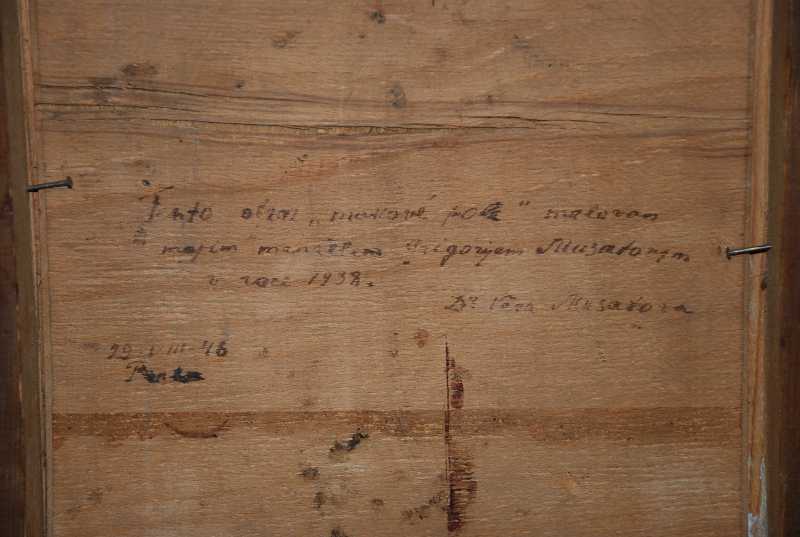 Tento obraz „makové pole" malovan
mojim manželem Grigorijem Musatovym
v roce 1938.
Dr Věra Musatova
29 VIII-46
Praha